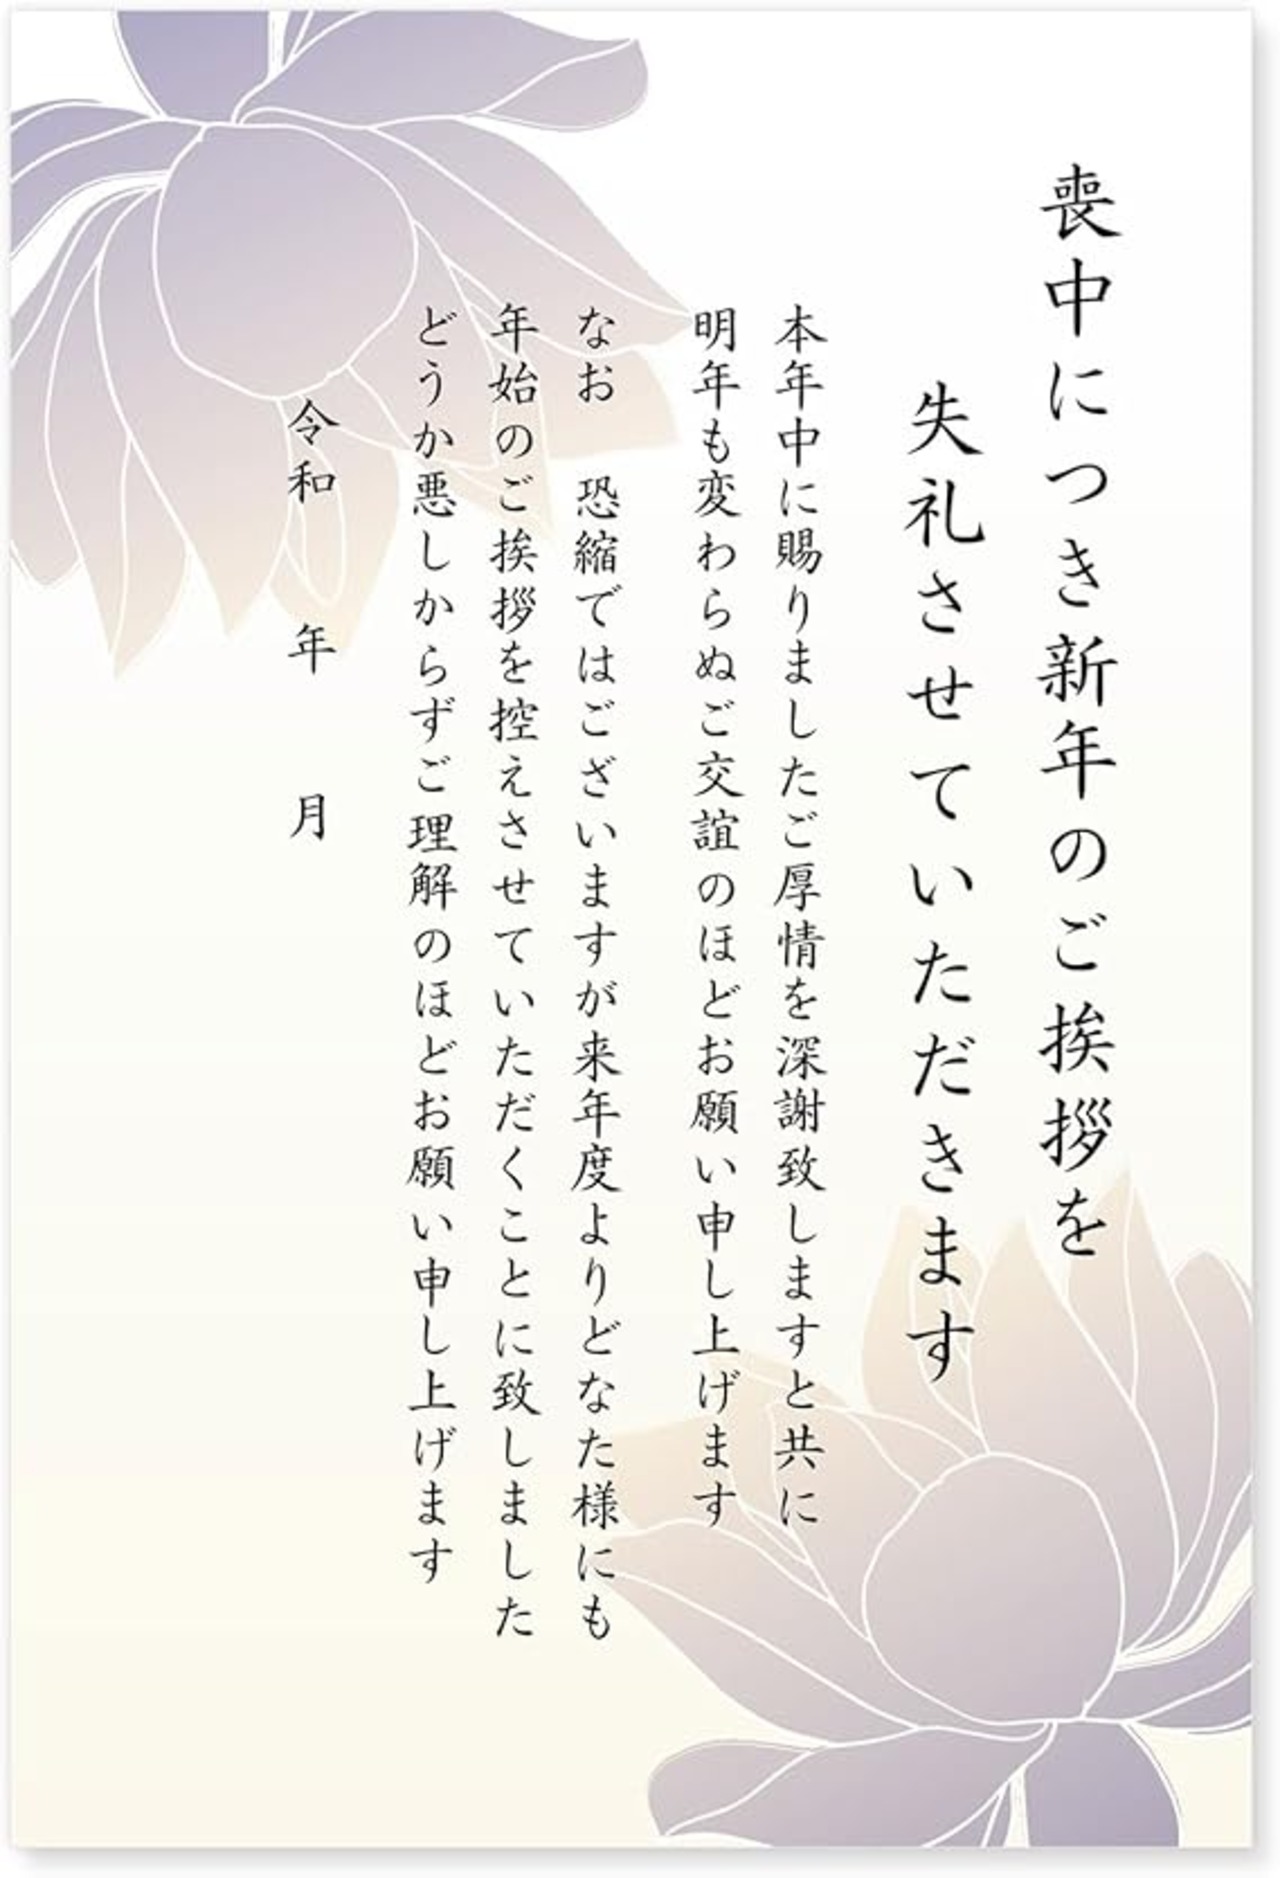 喪中につき新年のご挨拶を
失礼させていただきます
本年中に賜りましたご厚情を深謝致しますと共に
明年も変わらぬご交誼のほどお願い申し上げます
なお　恐縮ではございますが来年度よりどなた様にも
年始のご挨拶を控えさせていただくことに致しました
どうか悪しからずご理解のほどお願い申し上げます
令和　　年　　月